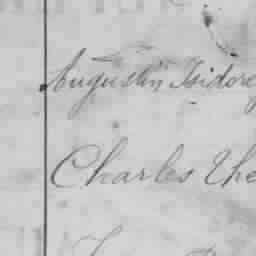 Augustin Isidore
Charles The